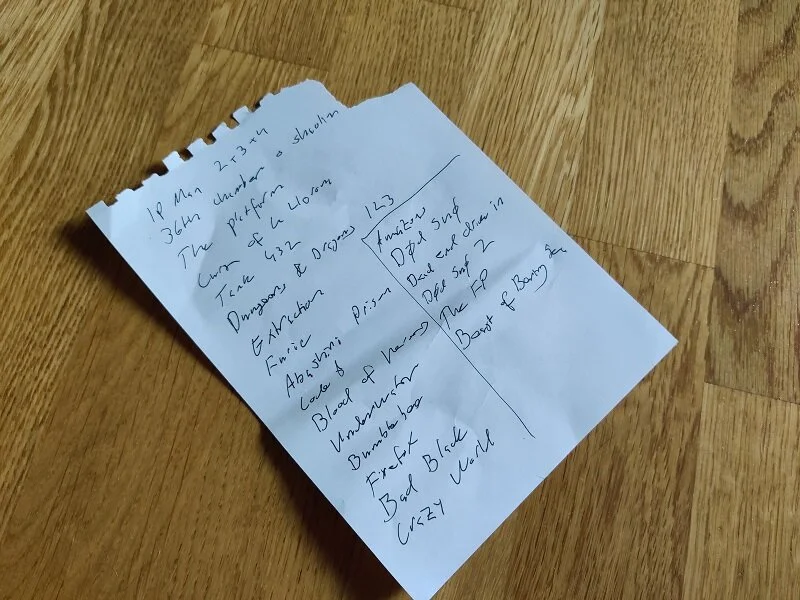 IP Man 2+3+4
36th chamber o shaolin
The platform
Curse of
Tank 432
Dungeons & Dragons 123
Extraction
Eurie
Abashiri Prison
Code 8
Blood of heroes
Underwater
Bumblebee
Firefox
Bad Black
Crazy World
Amazons
Død snø
Dead end drive in
Død snø 2
The FP
Beast of